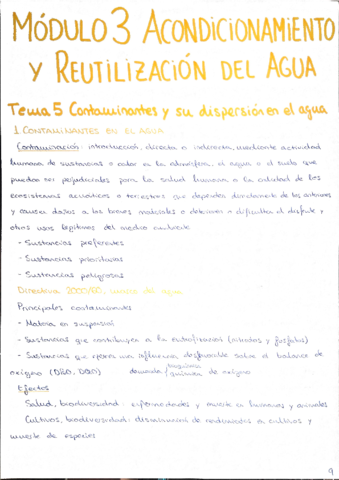 MÓDULO 3 ACONDICIONAMIENTO
Y REUTILIZACIÓN DEL AGUA
Tema 5 Contaminantes y su dispersión en el agua
1 CONTAMINANTES EN EL AGUA
Contaminación: introducción, directa o indirecta, mediante actividad
humana de sustancias o calor en la atmósfera, el agua o el suelo que
puedan ser perjudiciales para la salud humana o la calidad de los
ecosistemas acuáticos o terrestres que dependen directamente de los anteriores
y causen daños a los bienes materiales o deterioren o dificulten el disfrute y
otros usos legítimos del medio ambiente
- Sustancias preferentes
- Sustancias prioritarias
- Sustancias peligrosas
Directiva 2000/60, marco del agua
Principales contaminantes
- Materia en suspensión
- Sustancias que contribuyen a la eutrofización (nitratos y fosfatos)
- Sustancias que ejercen una influencia desfavorable sobre el balance de
oxígeno (DBO, DQO) demanda bioquímica/química de oxígeno
Efectos
Salud, biodiversidad: enfermedades y muerte en humanos y animales
Cultivos, biodiversidad: disminución de rendimientos en cultivos y
muerte de especies
9